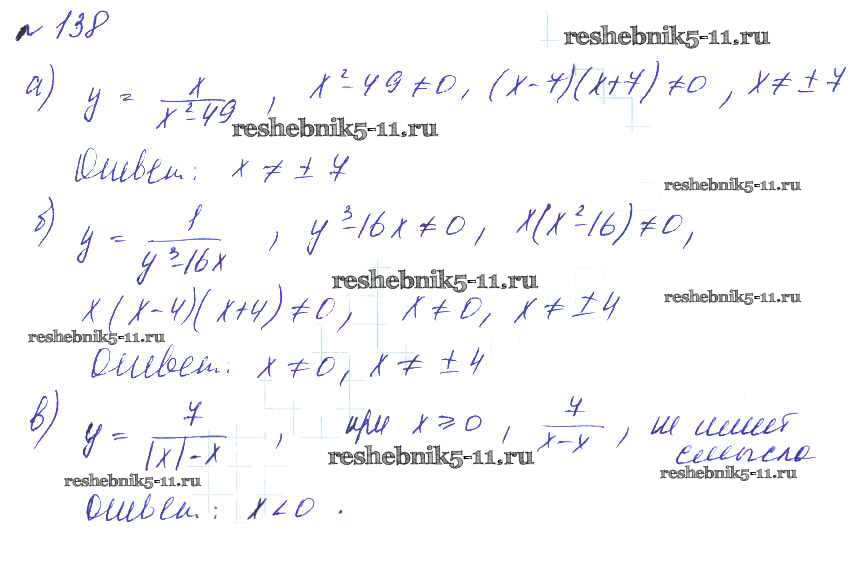 № 138
reshebnik5-11.ru
а) y = x/(x²-49), x²-49≠0, (x-7)(x+7)≠0, x≠±7
reshebnik5-11.ru
Ответ: x≠±7
reshebnik5-11.ru
б) y = 1/(y³-16x), y³-16x≠0, x(x²-16)≠0,
reshebnik5-11.ru
reshebnik5-11.ru
x(x-4)(x+4)≠0, x≠0, x≠±4
reshebnik5-11.ru
Ответ: x≠0, x≠±4
в) y = 7/(|x|-x), при x≥0, 7/(x-x), не имеет
смысла
reshebnik5-11.ru
reshebnik5-11.ru
reshebnik5-11.ru
Ответ: x<0.